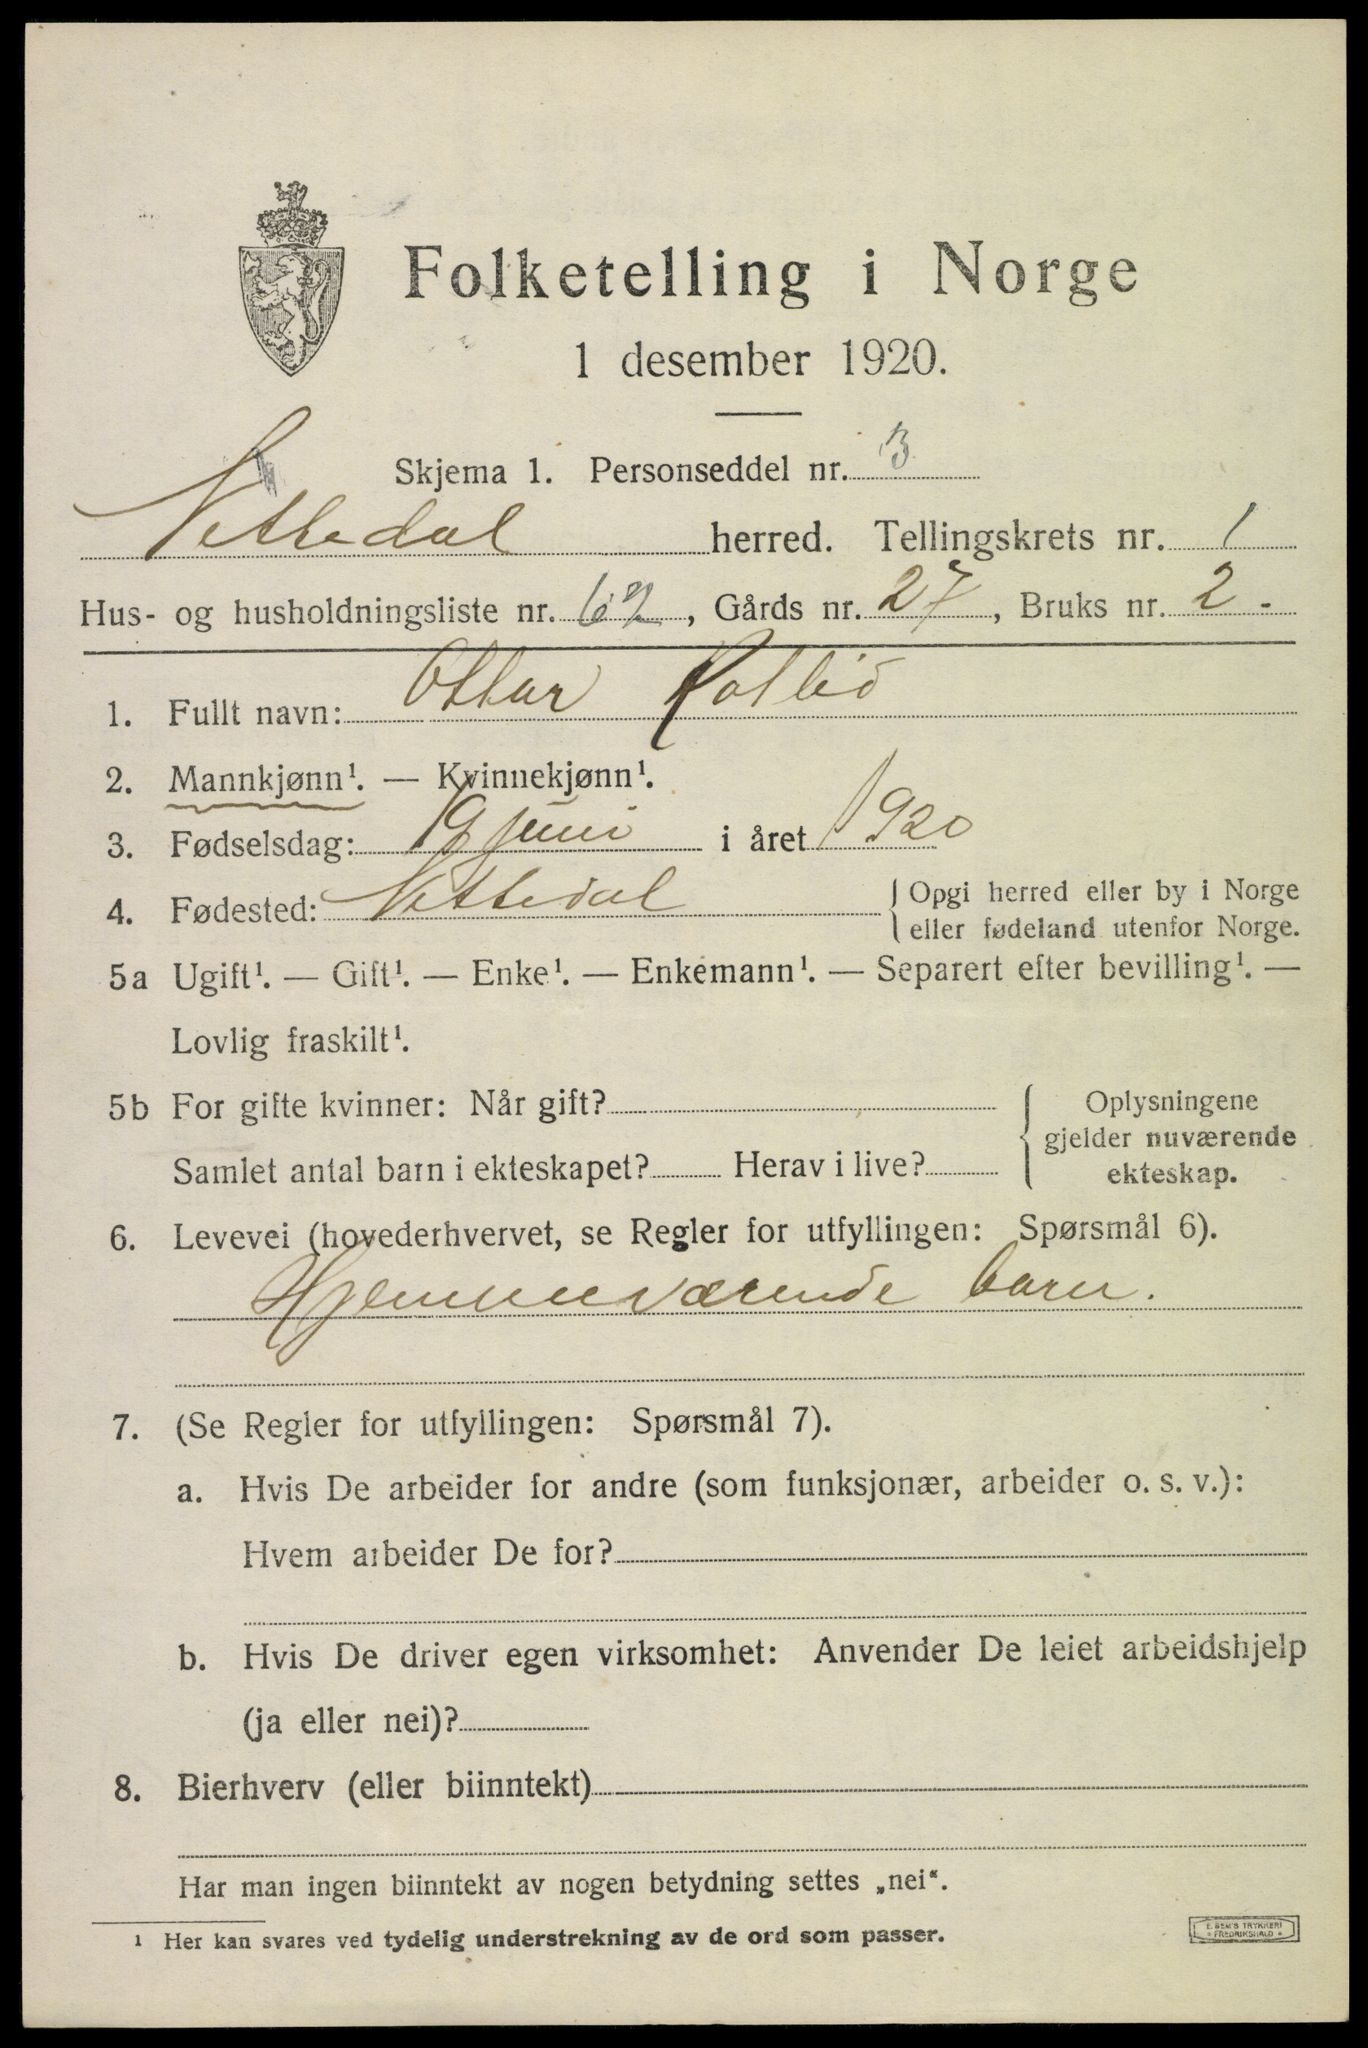 Folketelling i Norge
1 desember 1920.
Skjema 1. Personseddel nr. 3
Nittedal herred. Tellingskrets nr. 1
Hus- og husholdningsliste nr. 62, Gårds nr. 27, Bruks nr. 2.
1. Fullt navn: Ottar
2. Mannkjønn¹. — Kvinnekjønn¹.
3. Fødselsdag: 19 juni i året 1920
4. Fødested: Nittedal { Opgi herred eller by i Norge
eller fødeland utenfor Norge.
5a Ugift¹. — Gift¹. — Enke¹. — Enkemann¹. — Separert efter bevilling¹. —
Lovlig fraskilt¹.
5b For gifte kvinner: Når gift? { Oplysningene
gjelder nuværende
Samlet antal barn i ekteskapet? Herav i live? ekteskap.
6. Levevei (hovederhvervet, se Regler for utfyllingen: Spørsmål 6).
Hjemmeværende barn.
7. (Se Regler for utfyllingen: Spørsmål 7).
a. Hvis De arbeider for andre (som funksjonær, arbeider o. s. v.):
Hvem arbeider De for?
b. Hvis De driver egen virksomhet: Anvender De leiet arbeidshjelp
(ja eller nei)?
8. Bierhverv (eller biinntekt)
Har man ingen biinntekt av nogen betydning settes „nei“.
¹ Her kan svares ved tydelig understrekning av de ord som passer.
E. SEM'S TRYKKERI
FREDRIKSHALD